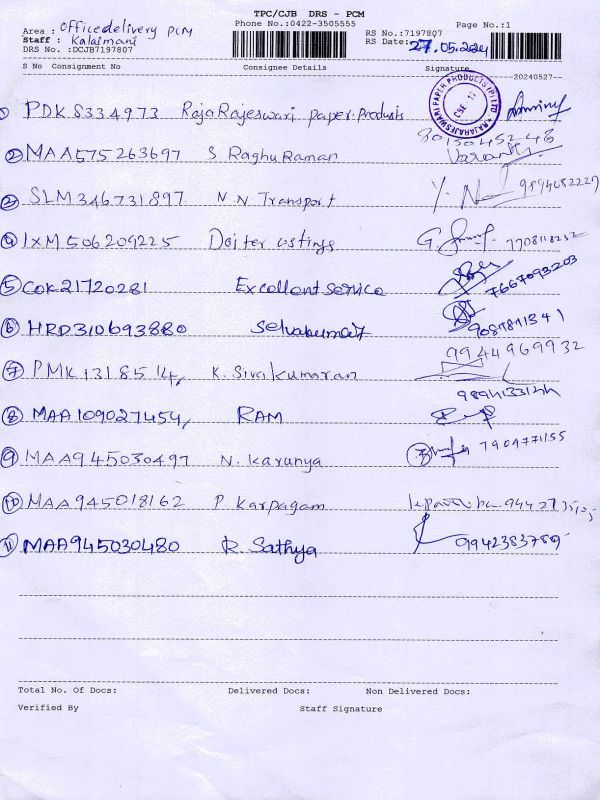 TPC/CJB DRS - PCM
Area : Office delivery PCM
Phone No.:0422-3505555
Page No.:1
Staff : Kalaimani
RS No.:7197807
DRS No. :DCJB7197807
RS Date: 27.05.2024
S No Consignment No Consignee Details Signature
--20240527--
RAJARAJESWARI PAPER PRODUCTS (P) LTD
CBE 17
① PDK8334973 RajaRajeswari paper.products
② MAA575263697 S RaghuRaman 8015045248
③ SLM346731897 N.N Transport 9894082229
④ IXM506209225 7708118252
⑤ COK21720281 Excellent service 7667093203
⑥ HRD310693880 Selvakumar 9087871341
⑦ PMK1318514, K. Sivakumaran 9944969932
⑧ MAA109027454, RAM 9894133144
⑨ MAA945030497 N. Karunya 7904771155
⑩ MAA945018162 P Karpagam
⑪ MAA945030480 R. Sathya 9942383789
Total No. Of Docs: Delivered Docs: Non Delivered Docs:
Verified By Staff Signature